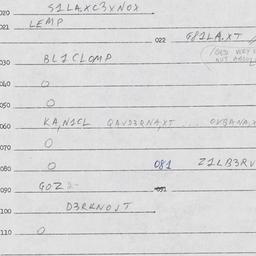 020 S1LA.XC3XNOX
021 LEMP
022 G81LA.XT
030 BL1CLOMP
040 O
050 O
060 KA,N1CL QAVD3QNA,XT ... OVBANA,X
070 O
080 O 081 Z1LB3RV
090 GOZ 091
100 D3RKNOJT
110 O